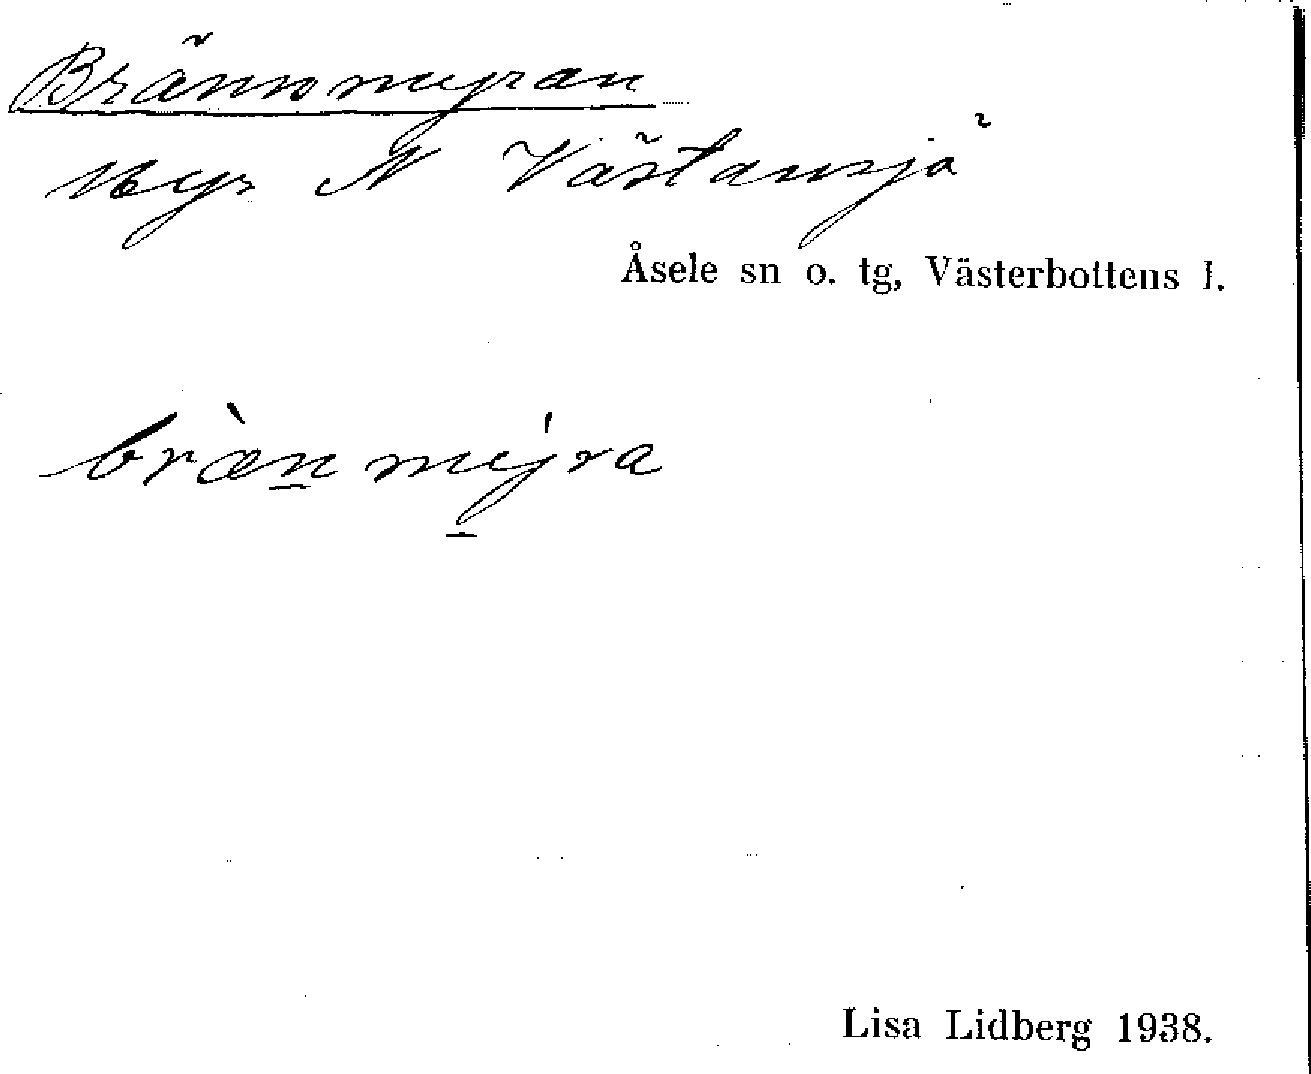 Brännmyran
Myr N Västansjö
Åsele sn o. tg, Västerbottens l.
bræ̀n mýra
Lisa Lidberg 1938.